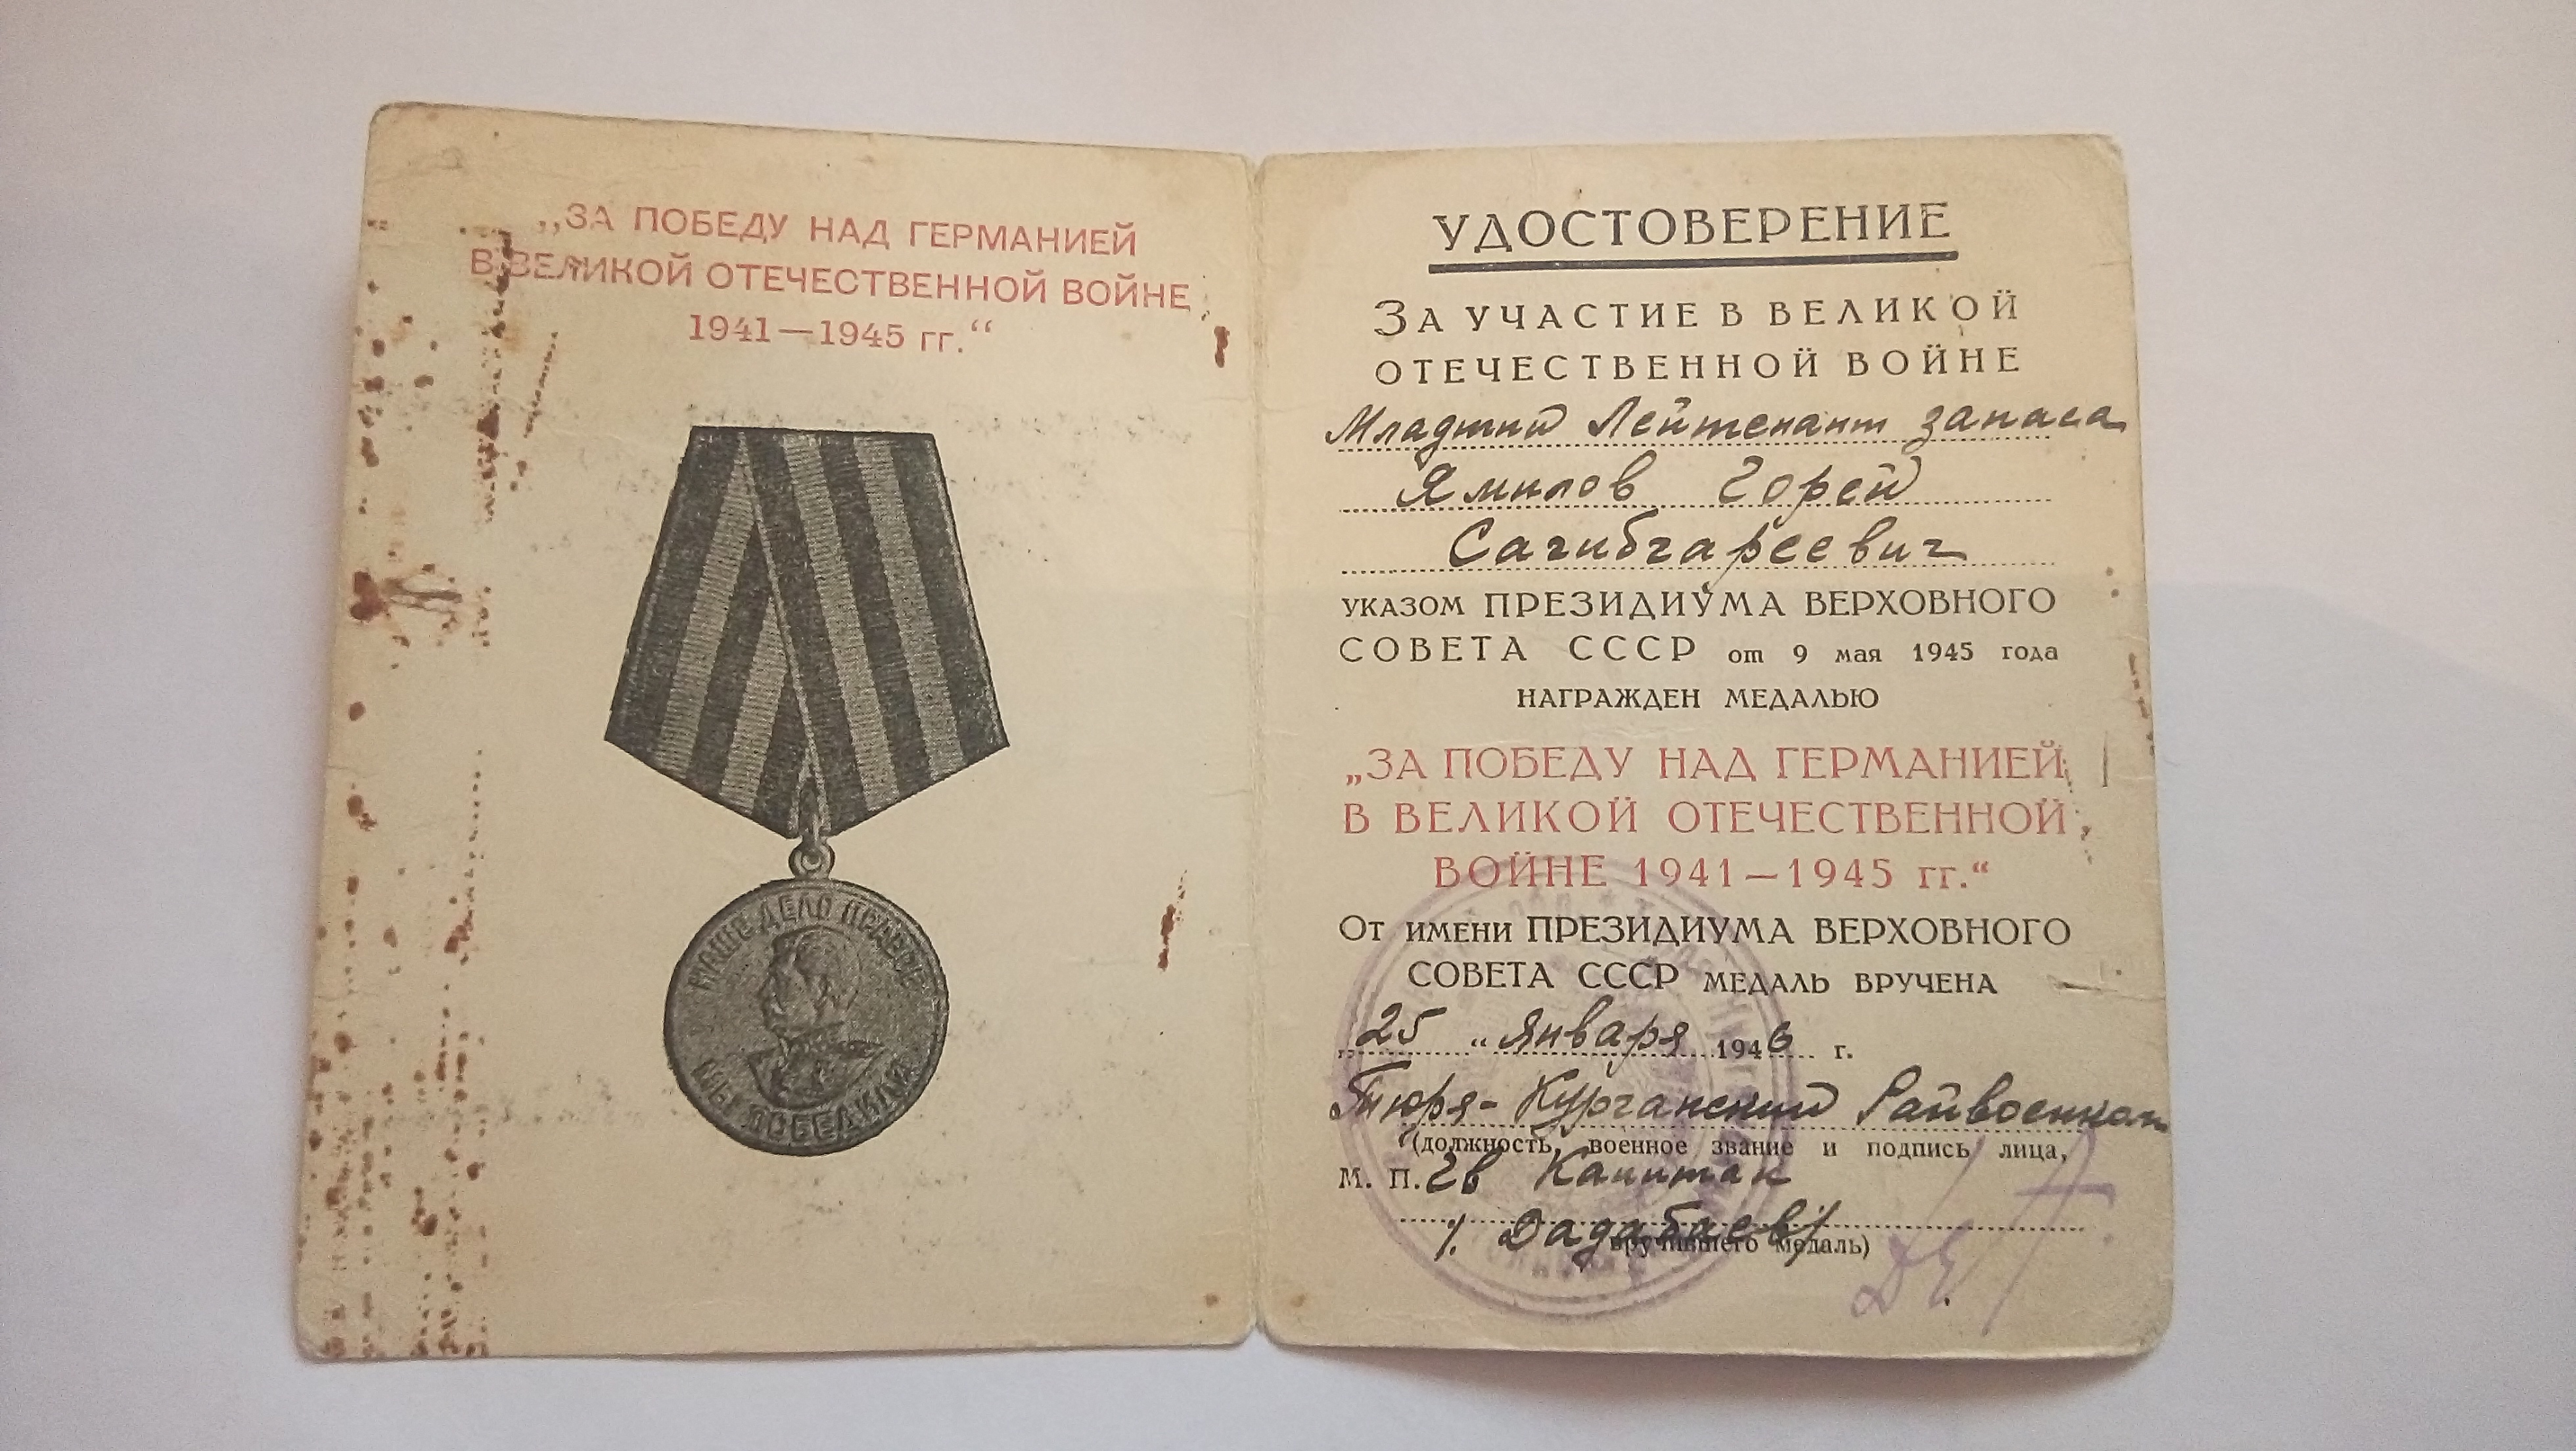 „ЗА ПОБЕДУ НАД ГЕРМАНИЕЙ
В ВЕЛИКОЙ ОТЕЧЕСТВЕННОЙ ВОЙНЕ
1941—1945 гг.“
НАШЕ ДЕЛО ПРАВОЕ
МЫ ПОБЕДИЛИ
УДОСТОВЕРЕНИЕ
ЗА УЧАСТИЕ В ВЕЛИКОЙ
ОТЕЧЕСТВЕННОЙ ВОЙНЕ
Младший Лейтенант запаса
Ямилов Горей
Сагибгареевич
УКАЗОМ ПРЕЗИДИУМА ВЕРХОВНОГО
СОВЕТА СССР от 9 мая 1945 года
НАГРАЖДЕН МЕДАЛЬЮ
„ЗА ПОБЕДУ НАД ГЕРМАНИЕЙ
В ВЕЛИКОЙ ОТЕЧЕСТВЕННОЙ
ВОЙНЕ 1941—1945 гг.“
ОТ ИМЕНИ ПРЕЗИДИУМА ВЕРХОВНОГО
СОВЕТА СССР МЕДАЛЬ ВРУЧЕНА
25 “ Января 1946 г.
Тюря-Курганский Райвоенком
(должность, военное звание и подпись лица,
М. П. Гв Капитан
/. Дадабаев/
вручившего медаль)